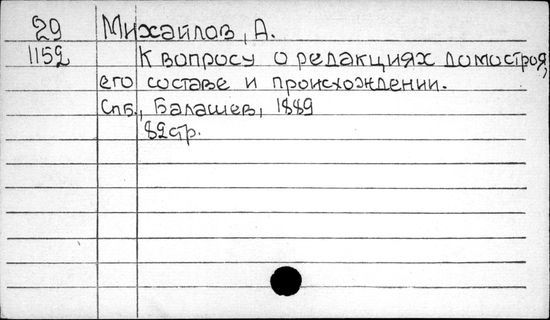 29 Михайлов, А.
1152 К вопросу о редакциях домостроя,
его составе и происхождении.
Спб., Балашев, 1889
82стр.